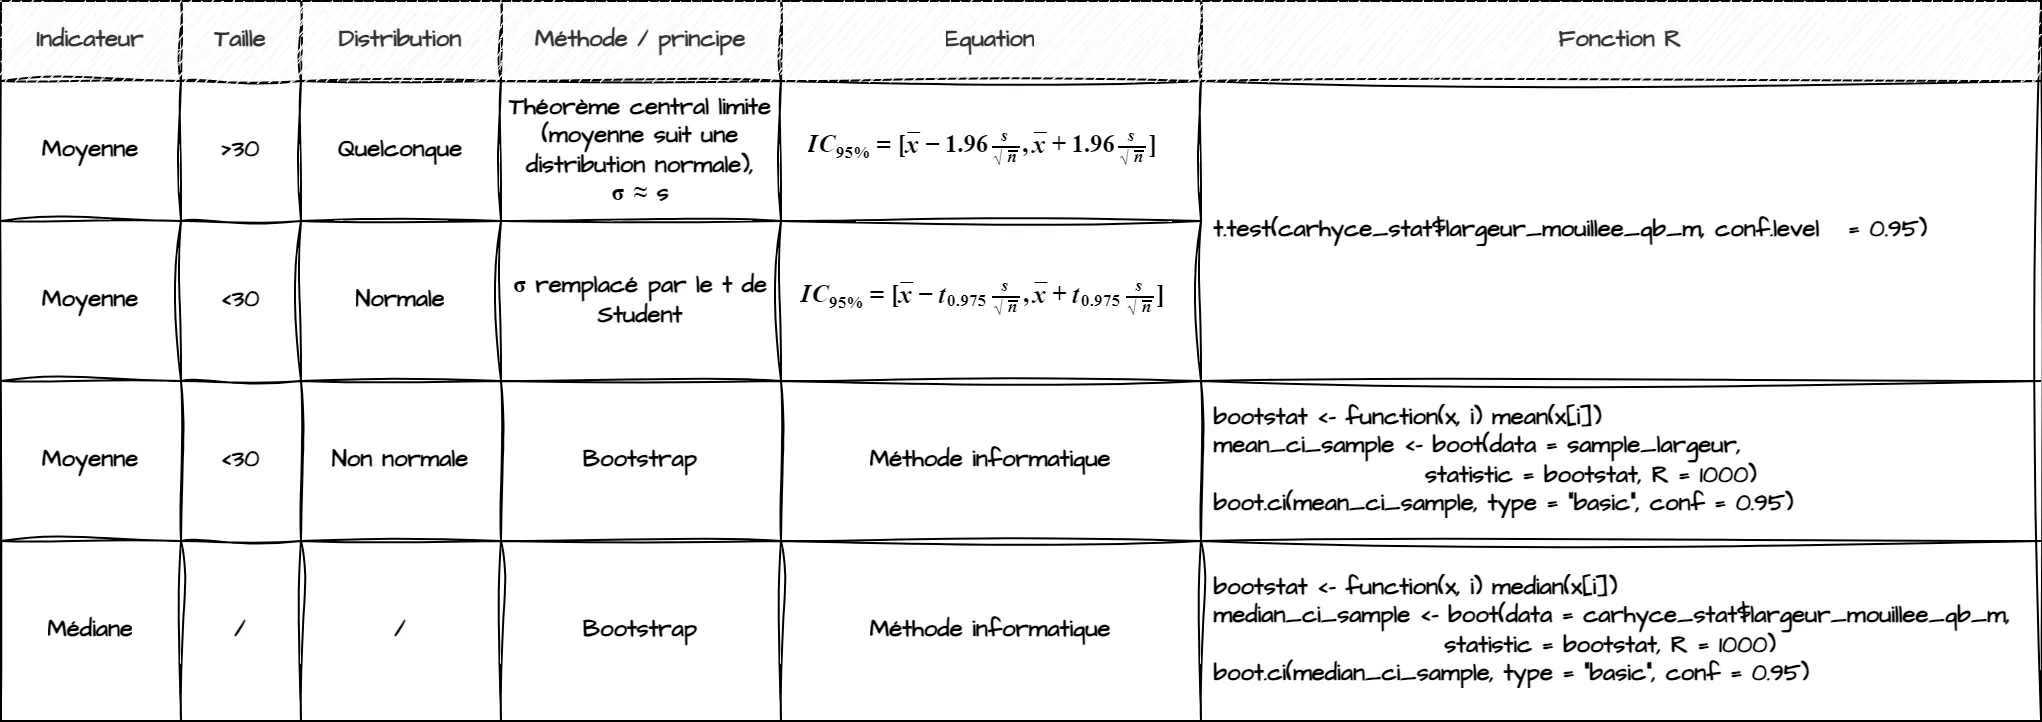 Indicateur
Taille
Distribution
Méthode / principe
Equation
Fonction R
Moyenne
>30
Quelconque
Théorème central limite
(moyenne suit une
distribution normale),
σ ≈ s
IC95% = [x̅ − 1.96 s/√n̅, x̅ + 1.96 s/√n̅]
t.test(carhyce_stat$largeur_mouillee_qb_m, conf.level   = 0.95)
Moyenne
<30
Normale
σ remplacé par le t de
Student
IC95% = [x̅ − t0.975 s/√n̅, x̅ + t0.975 s/√n̅]
Moyenne
<30
Non normale
Bootstrap
Méthode informatique
bootstat <- function(x, i) mean(x[i])
mean_ci_sample <- boot(data = sample_largeur,
statistic = bootstat, R = 1000)
boot.ci(mean_ci_sample, type = "basic", conf = 0.95)
Médiane
/
/
Bootstrap
Méthode informatique
bootstat <- function(x, i) median(x[i])
median_ci_sample <- boot(data = carhyce_stat$largeur_mouillee_qb_m,
statistic = bootstat, R = 1000)
boot.ci(median_ci_sample, type = "basic", conf = 0.95)